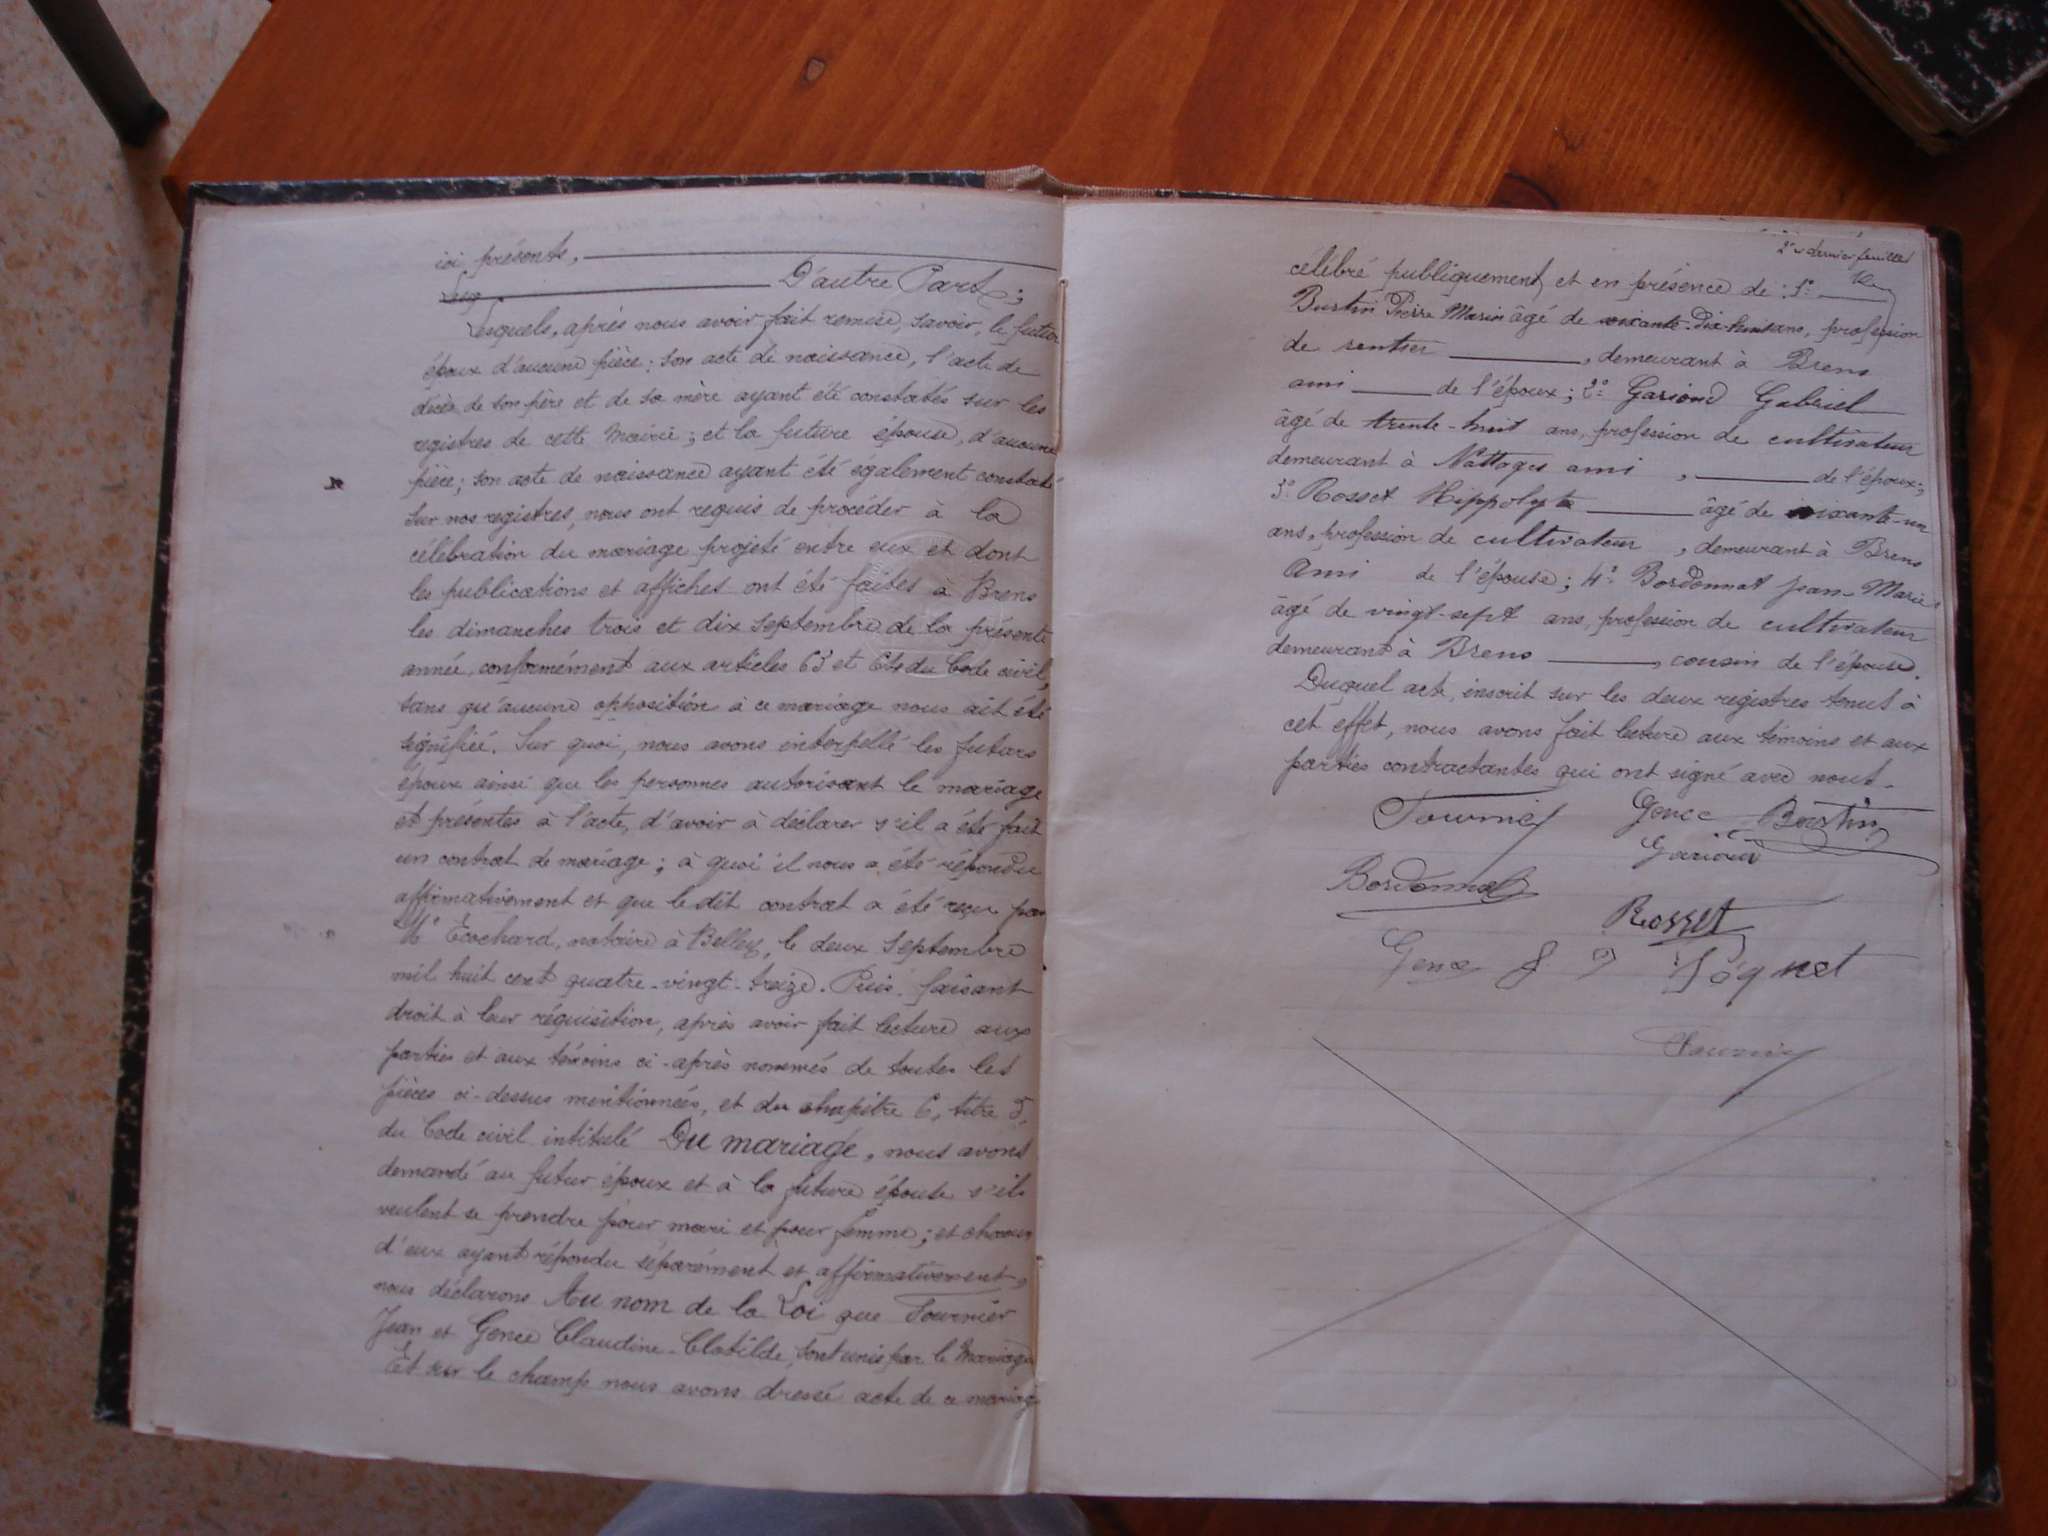 ici présents,
D'autre Part ;
Lesquels, après nous avoir fait remise, savoir, le futur
époux d'aucune pièce ; son acte de naissance, l'acte de
décès de son père et de sa mère ayant été constatés sur les
registres de cette Mairie ; et la future épouse, d'aucune
pièce ; son acte de naissance ayant été également constaté
sur nos registres, nous ont requis de procéder à la
célébration du mariage projeté entre eux et dont
les publications et affiches ont été faites à Brens
les dimanches trois et dix septembre de la présente
année, conformément aux articles 63 et 64 du Code civil,
sans qu'aucune opposition à ce mariage nous ait été
signifiée. Sur quoi, nous avons interpellé les futurs
époux ainsi que les personnes autorisant le mariage
et présentes à l'acte, d'avoir à déclarer s'il a été fait
un contrat de mariage ; à quoi il nous a été répondu
affirmativement et que le dit contrat a été reçu par
Me Ecochard, notaire à Belley, le deux Septembre
mil huit cent quatre-vingt-treize. Puis, faisant
droit à leur réquisition, après avoir fait lecture aux
parties et aux témoins ci-après nommés de toutes les
pièces ci-dessus mentionnées, et du chapitre 6, titre 5,
du Code civil intitulé Du mariage, nous avons
demandé au futur époux et à la future épouse s'ils
veulent se prendre pour mari et pour femme ; et chacun
d'eux ayant répondu séparément et affirmativement,
nous déclarons Au nom de la Loi que Fournier
Jean et Gence Claudine-Clotilde, sont unis par le Mariage
Et sur le champ nous avons dressé acte de ce mariage
2e et dernier feuillet
célébré publiquement et en présence de : 1°
Bustin Pierre Marin âgé de soixante-dix-huit ans, profession
de rentier , demeurant à Brens
ami de l'époux ; 2° Gariond Gabriel
âgé de trente-huit ans, profession de cultivateur
demeurant à Nattages ami , de l'époux ;
3° Rosset Hippolyte âgé de soixante-un
ans, profession de cultivateur , demeurant à Brens
Ami de l'épouse ; 4° Bordonnat Jean-Marie
âgé de vingt-sept ans, profession de cultivateur
demeurant à Brens , cousin de l'épouse.
Duquel acte, inscrit sur les deux registres tenus à
cet effet, nous avons fait lecture aux témoins et aux
parties contractantes qui ont signé avec nous.
Fournier Gence Bustin
Gariond
Bordonnat
Rosset
Gence
Fournier